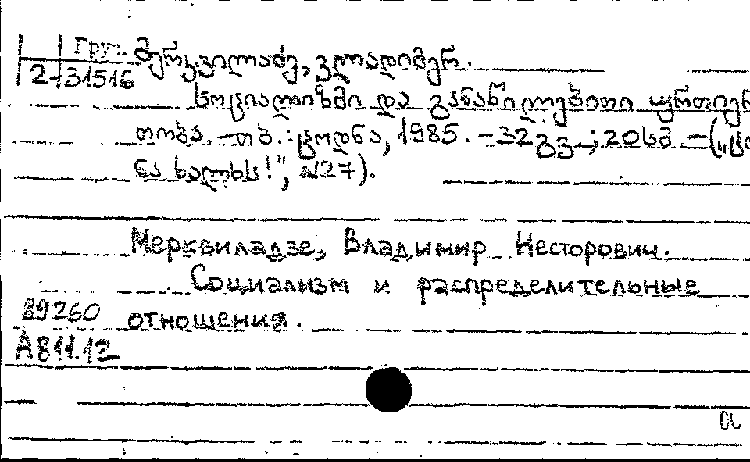 Груз. მერკვილაძე, ვლადიმერ.
2-31516
სოციალიზმი და განაწილებითი ურთიერ
თობა. -თბ.: ცოდნა, 1985. -32 გვ.; 20 სმ -("ცოდ
ნა ხალხს!", №27).
Мерквиладзе, Владимир Несторович.
Социализм и распределительные
89260 отношения.
А811.12
a